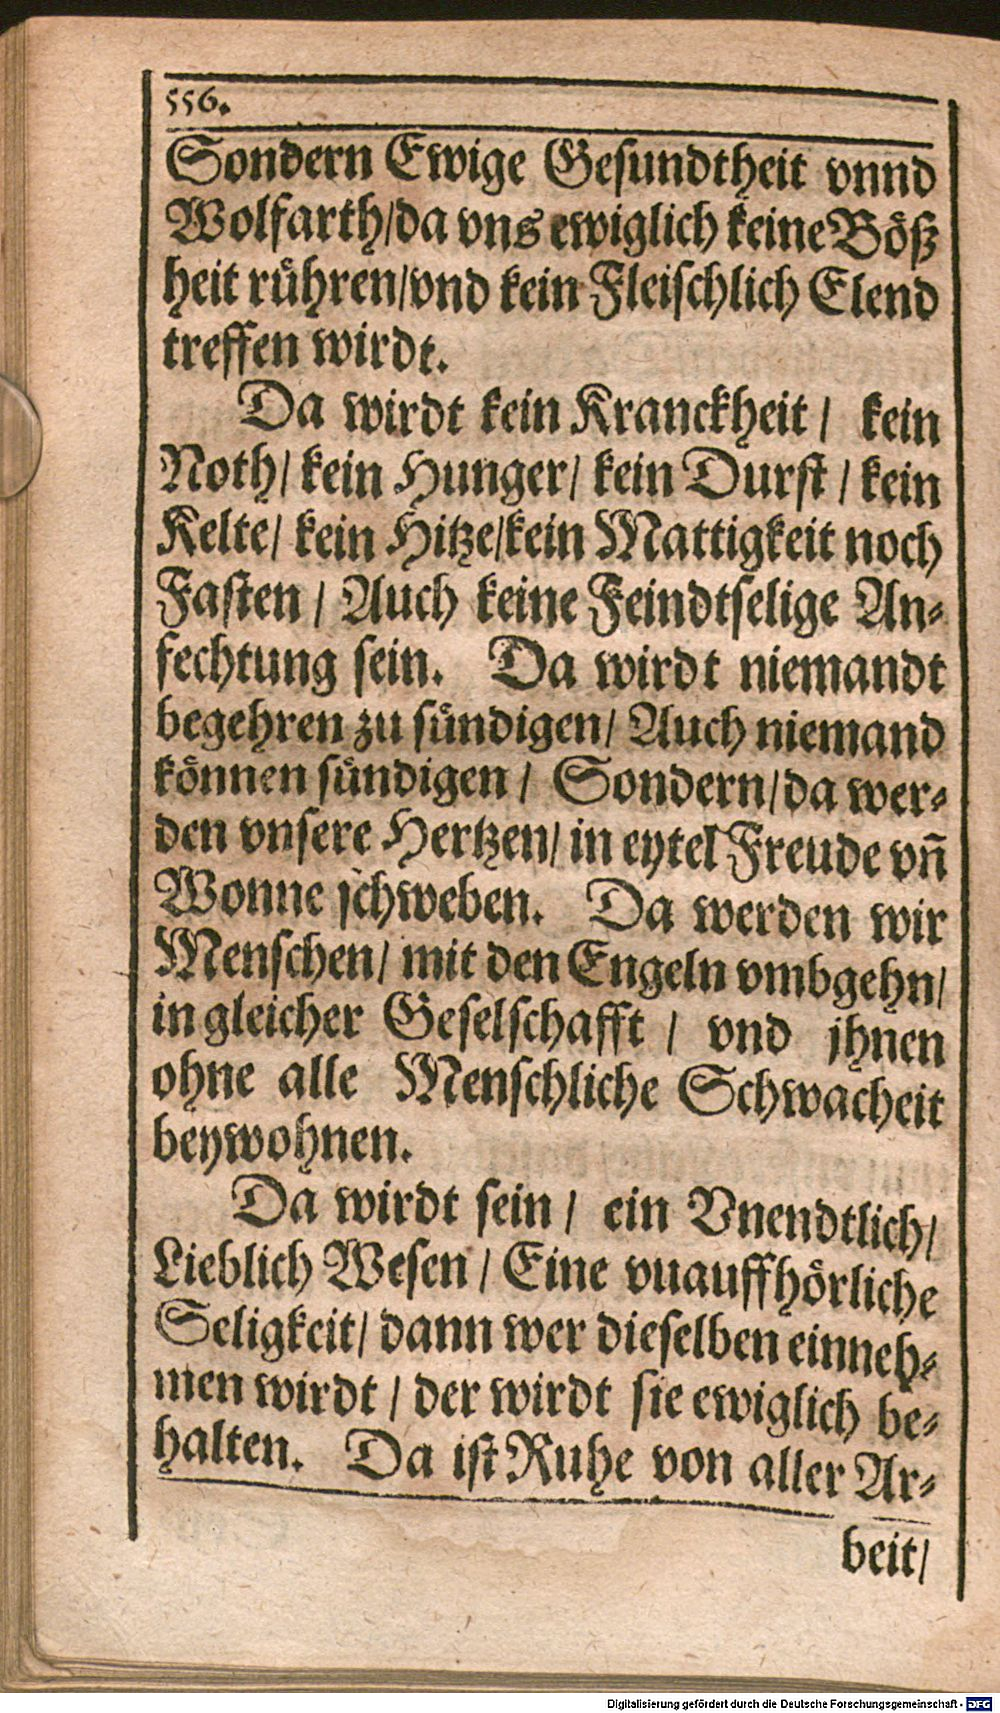 556.
Sondern Ewige Gesundtheit vnnd
Wolfarth/da vns ewiglich keine Bößz
heit rühren/vnd kein Fleischlich Elend
treffen wirdt.
Da wirdt kein Kranckheit/ kein
Noth/ kein Hunger/ kein Durst/ kein
Kelte/ kein Hitze/kein Mattigkeit noch
Fasten/ Auch keine Feindtselige An-
fechtung sein. Da wirdt niemandt
begehren zu sündigen/ Auch niemand
können sündigen/ Sondern/da wer-
den vnsere Hertzen/ in eytel Freude vñ
Wonne schweben. Da werden wir
Menschen/ mit den Engeln vmbgehn/
in gleicher Geselschafft/ vnd jhnen
ohne alle Menschliche Schwacheit
beywohnen.
Da wirdt sein/ ein Vnendtlich/
Lieblich Wesen/ Eine vnauffhörliche
Seligkeit/ dann wer dieselben einneh-
men wirdt/ der wirdt sie ewiglich be-
halten. Da ist Ruhe von aller Ar-
beit/
Digitalisierung gefördert durch die Deutsche Forschungsgemeinschaft - DFG